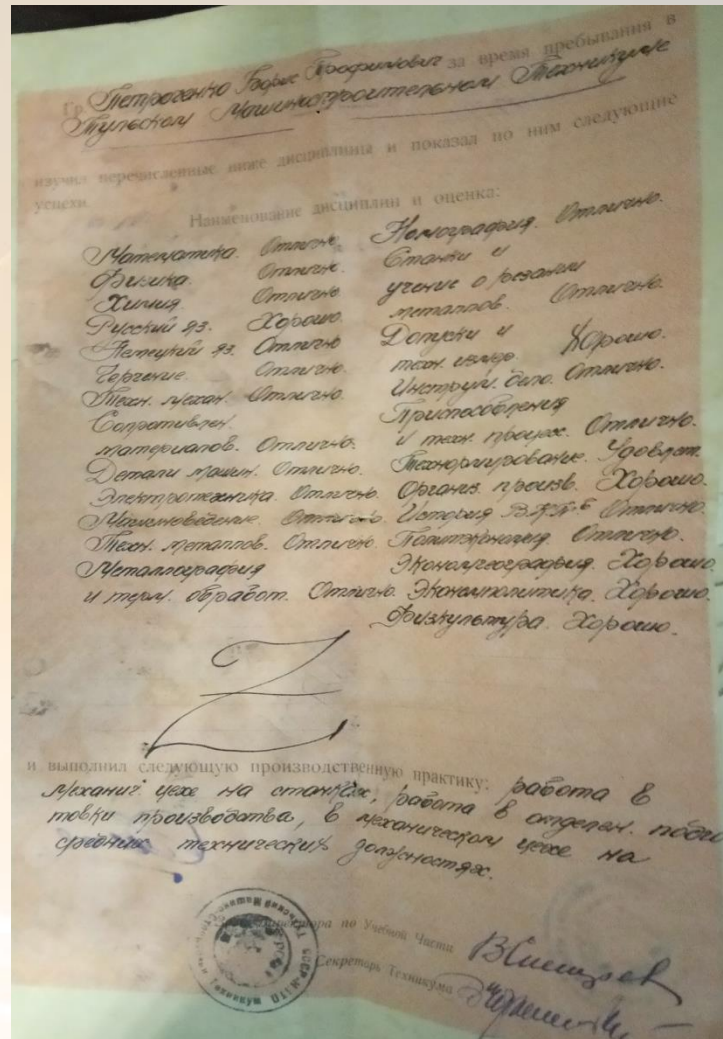 Гр. Петроченко Борис Трофимович за время пребывания в
Тульском Машиностроительном Техникуме
изучил перечисленные ниже дисциплины и показал по ним следующие
успехи
Наименование дисциплин и оценка:
Математика. Отлично.
Физика. Отлично.
Химия. Отлично
Русский яз. Хорошо.
Немецкий яз. Отлично
Черчение. Отлично.
Техн. механ. Отлично.
Сопротивлен.
материалов. Отлично.
Детали машин. Отлично.
Электротехника. Отлично.
Машиноведение. Отлично.
Техн. металлов. Отлично.
Металлография
и терм. обработ. Отлично.
Номография. Отлично.
Станки и
учение о резании
металлов. Отлично.
Допуски и
техн. измер. Хорошо.
Инструм. дело. Отлично.
Приспособления
и техн. процес. Отлично.
Технормирование. Удовлет.
Организ. произв. Хорошо.
История В.К.П.б Отлично.
Политэкономия. Отлично.
Экономгеография. Хорошо.
Экономполитика. Хорошо.
Физкультура. Хорошо.
и выполнил следующую производственную практику: работа в
механич. цехе на станках, работа в отделен. подго
товки производства, в механическом цехе на
средних технических должностях.
Директора по Учебной Части
Секретарь Техникума